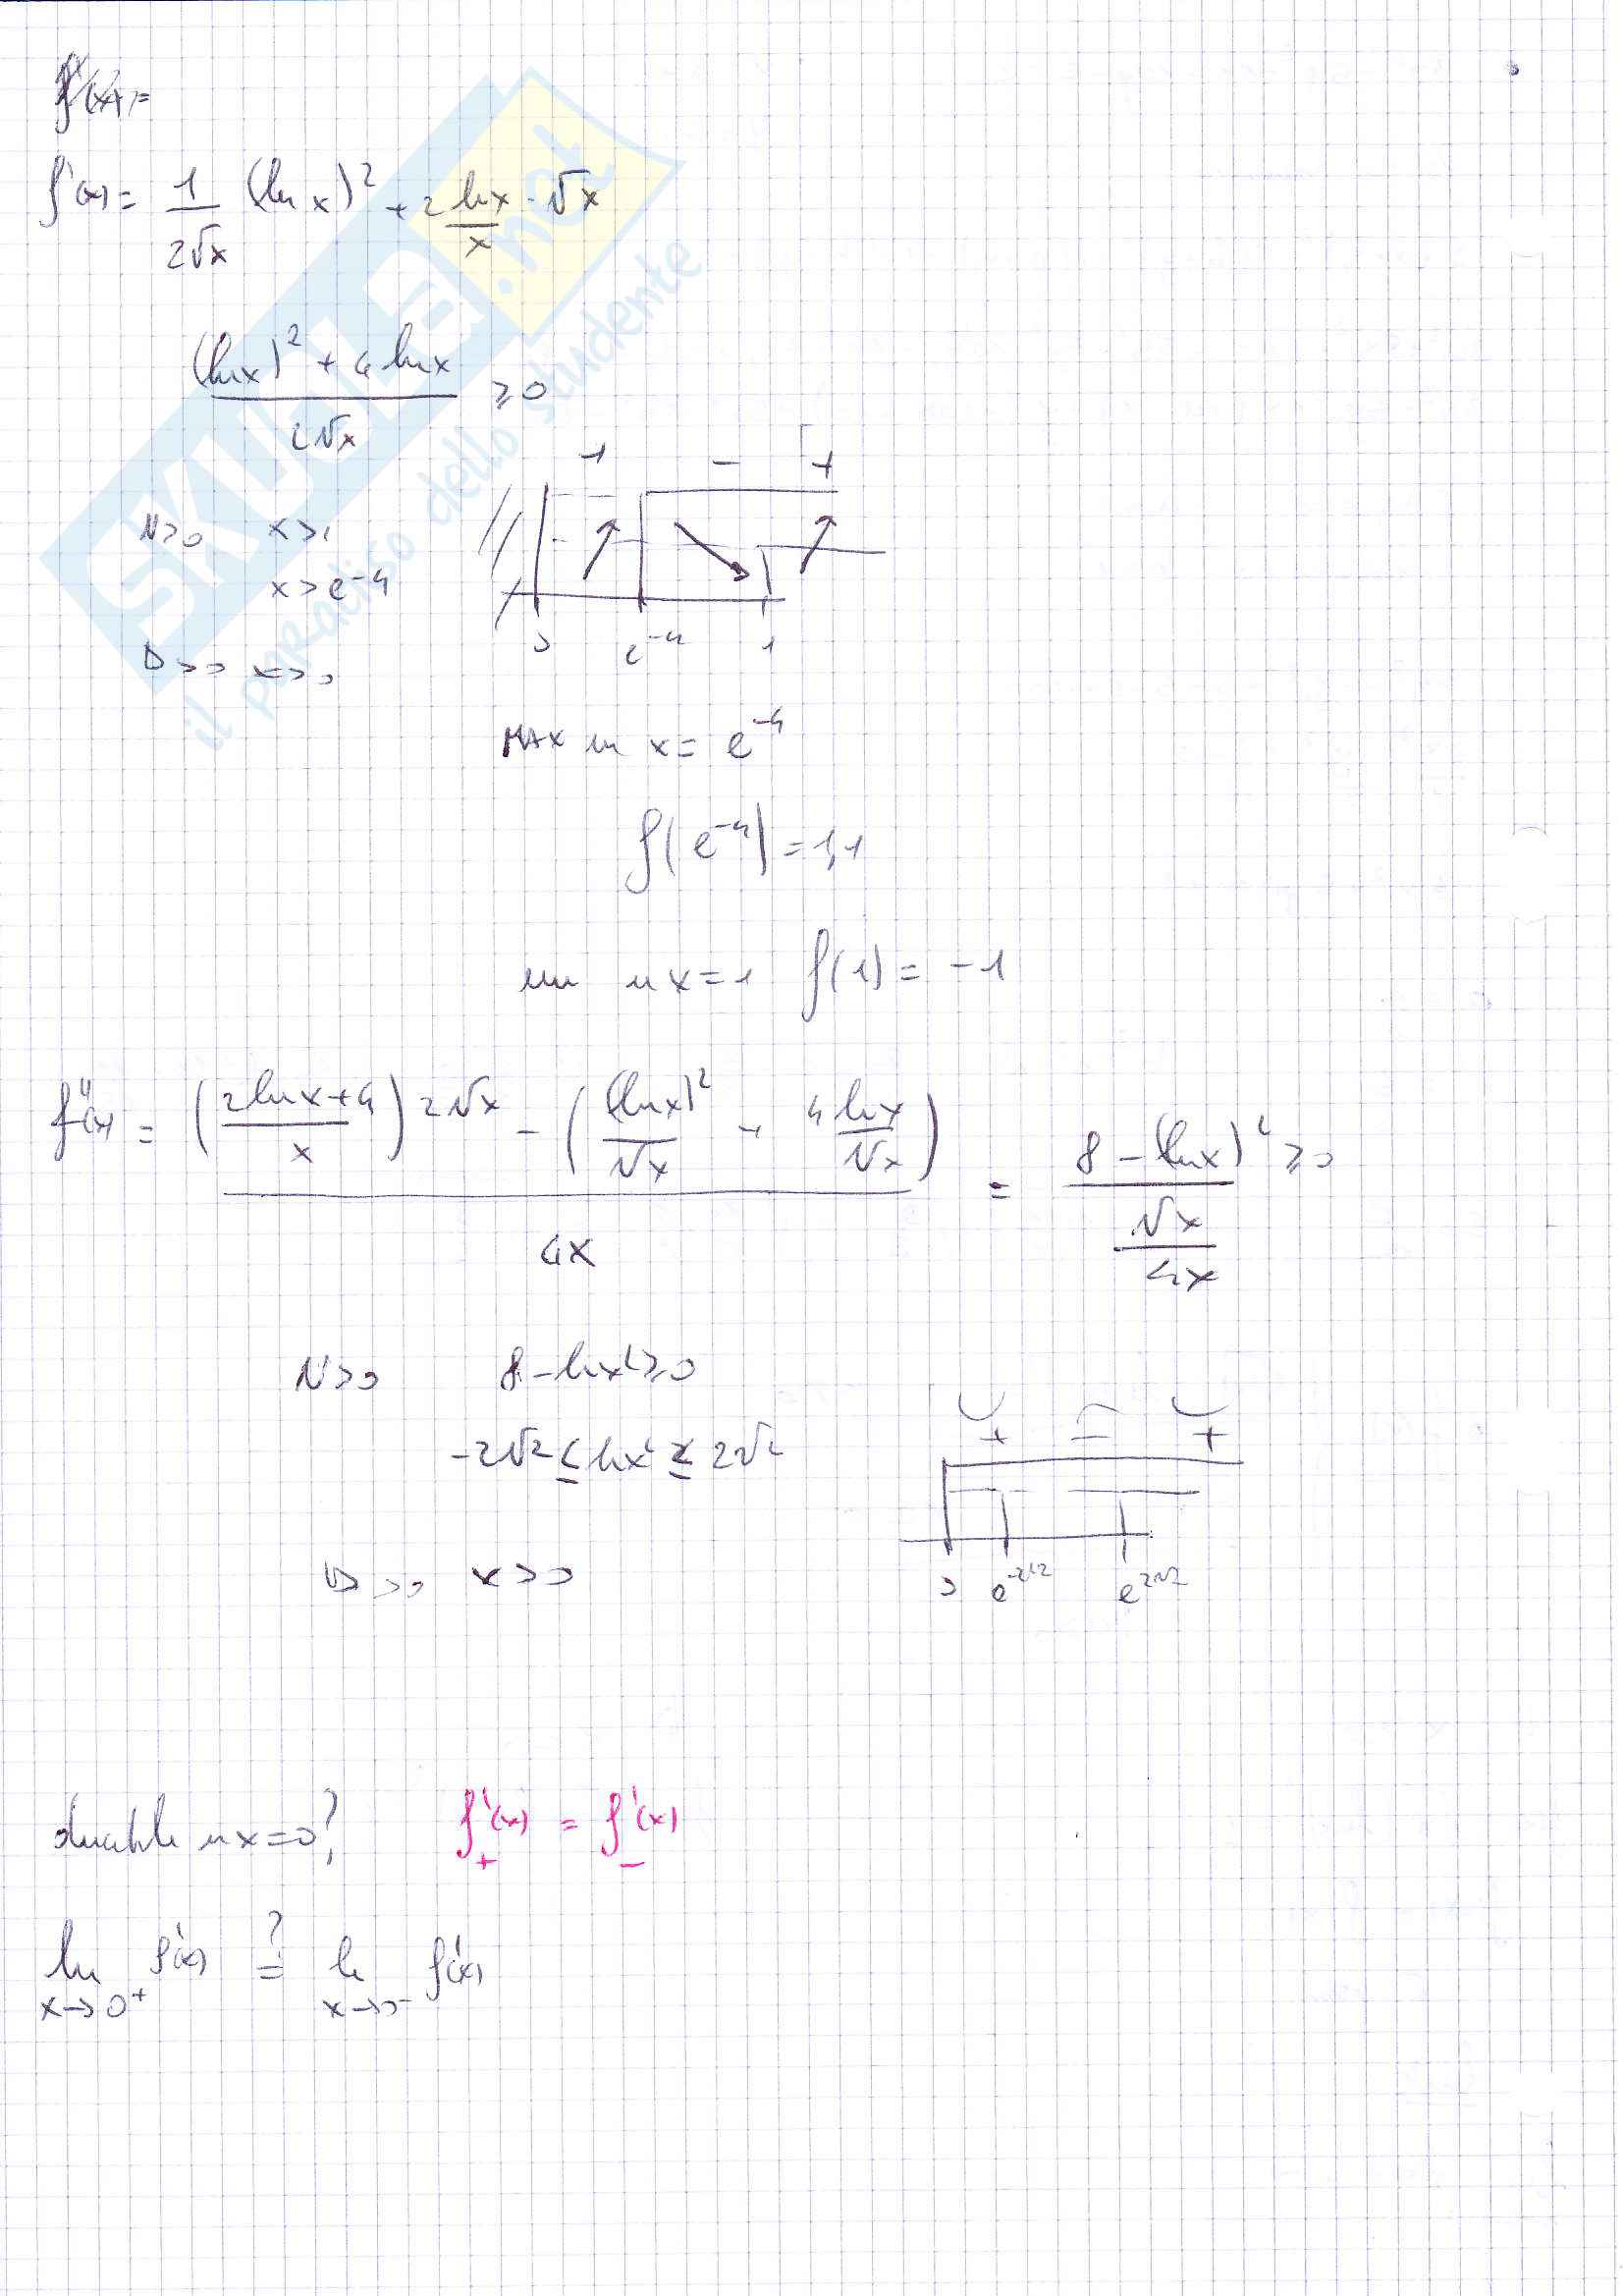 f'(x)=
f'(x) = 1/(2√x) (ln x)² + 2 lnx/x · √x
((lnx)² + 4 lnx)/(2√x) ≥ 0
+ - +
N>0 x>1
x>e⁻⁴
D>0 x>0
0 e⁻⁴ 1
MAX in x = e⁻⁴
f(e⁻⁴) = 1,1
min in x=1 f(1) = -1
f''(x) = (((2lnx+4)/x) 2√x - ((lnx)²/√x + 4 lnx/√x))/(4x) = (8-(lnx)²)/(√x/4x) ≥0
N>0 8-lnx²≥0
+ - +
-2√2 ≤ lnx² ≤ 2√2
D>0 x>0
0 e^-2√2 e^2√2
derivabile in x=0? f'₊(x) = f'₋(x)
lim x→0⁺ f'(x) =? lim x→0⁻ f'(x)
SKUOLA.net
il paradiso dello studente